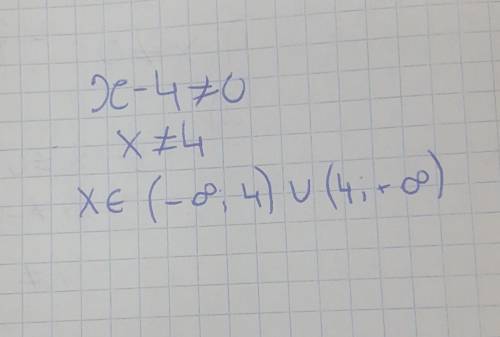 x-4≠0
x≠4
x∈ (-∞; 4) ∪ (4; +∞)